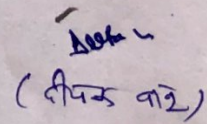 (दीपक वारे)